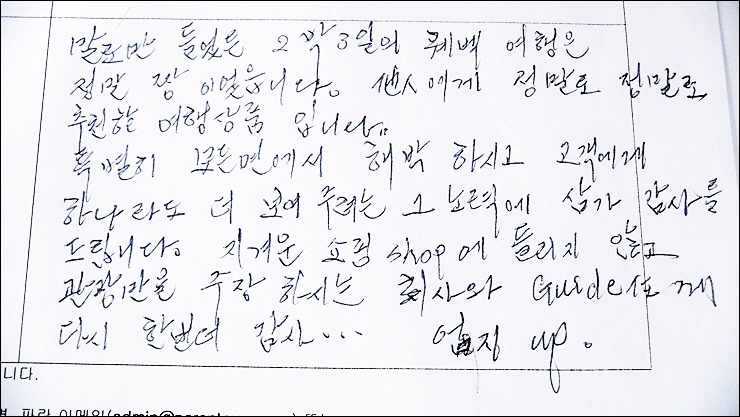 말로만 들었든 2박3일의 퀘백 여행은
정말 짱 이었읍니다. 他人에게 정말로 정말로
추천할 여행상품 입니다.
특별히 모든면에서 해박 하시고 고객에게
하나라도 더 보여 주려는 그 노력에 삼가 감사를
드립니다. 지겨운 쇼핑 shop에 들리지 않고
관광만을 주장 하시는 회사와 Guide 께
다시 한번더 감사... 엄지 up.
니다.